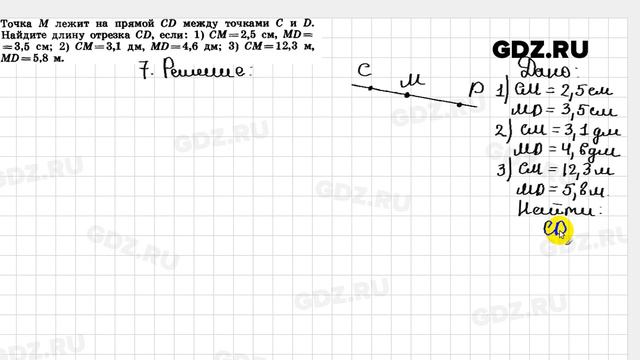 Точка M лежит на прямой CD между точками C и D.
Найдите длину отрезка CD, если: 1) CM=2,5 см, MD=
=3,5 см; 2) CM=3,1 дм, MD=4,6 дм; 3) CM=12,3 м,
MD=5,8 м.
GDZ.RU
7. Решение:
C M D
Дано:
1) CM = 2,5 см
MD = 3,5 см
2) CM = 3,1 дм
MD = 4,6 дм
3) CM = 12,3 м
MD = 5,8 м.
Найти:
CD
GDZ.RU
GDZ.RU
GDZ.RU
GDZ.RU
GDZ.RU
GDZ.RU
GDZ.RU